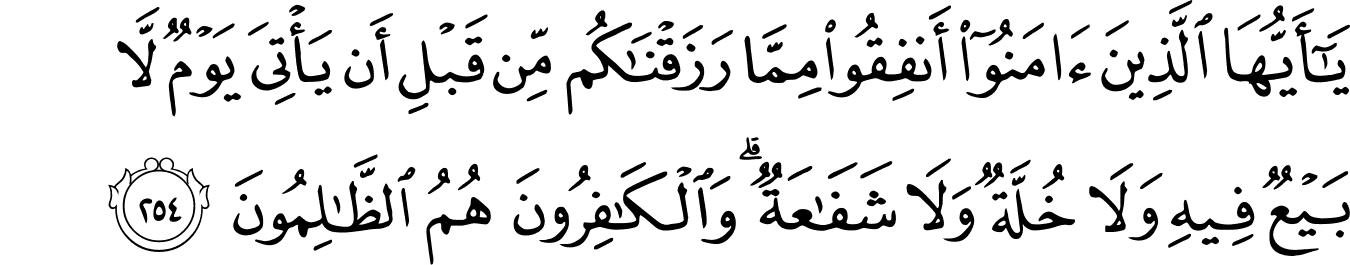 يَـٰٓأَيُّهَا ٱلَّذِينَ ءَامَنُوٓا۟ أَنفِقُوا۟ مِمَّا رَزَقْنَـٰكُم مِّن قَبْلِ أَن يَأْتِىَ يَوْمٌ لَّا
بَيْعٌ فِيهِ وَلَا خُلَّةٌ وَلَا شَفَـٰعَةٌ ۗ وَٱلْكَـٰفِرُونَ هُمُ ٱلظَّـٰلِمُونَ ٢٥٤